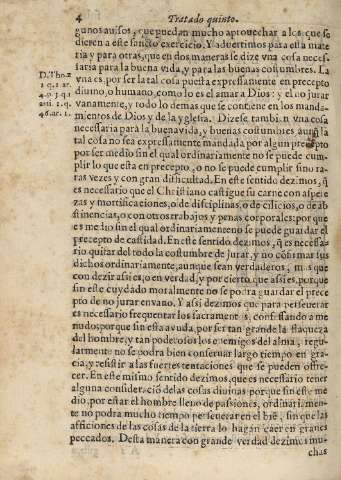 4 Tratado quinto.
gunos auisos, que puedan mucho aprouechar a los que se
dieren a este sancto exercicio. Y aduertimos para esta mate
ria y para otras, que en dos maneras se dize vna cosa neces-
saria para la buena vida, y para las buenas costumbres. La
vna es, por ser la tal cosa puesta expressamente en precepto
diuino, o humano, como lo es el amar a Dios: y el no jurar
vanamente, y todo lo demas que se contiene en los manda-
mientos de Dios y de la yglesia. Dizese tambien vna cosa
necessaria para la buena vida, y buenas costumbres, aunq̃ la
tal cosa no sea expressamente mandada por algun precepto
por ser medio sin el qual ordinariamente no se puede cum-
plir lo que esta en precepto, o no se puede cumplir sino ra-
ras vezes y con gran dificultad. En este sentido dezimos, q̃
es necessario que el Christiano castigue su carne con aspere
zas y mortificaciones, o de disciplinas, o de cilicios, o de abs
tinencias, o con otros trabajos y penas corporales: por que
es medio sin el qual ordinariamente no se puede guardar el
precepto de castidad. En este sentido dezimos, q̃ es necessa-
rio quitar del todo la costumbre de jurar, y no confirmar sus
dichos ordinariamente, aunque sean verdaderos, mas que
con dezir assi es, o en verdad, y por cierto que assi es, porque
sin este cuydado moralmente no se podra guardar el prece
pto de no jurar en vano. Y assi dezimos que para perseuerar
es necessario frequentar los sacramentos, confessando a me
nudo: porque sin esta ayuda, por ser tan grande la flaqueza
del hombre, y tan poderosos los enemigos del alma, regu-
larmente no se podra bien conseruar largo tiempo en gra-
cia, y resistir a las fuertes tentaciones que se pueden offre-
cer. En este mismo sentido dezimos, que es necessario tener
alguna consideració de las cosas diuinas porque sin este me
dio, por estar el hombre lleno de passiones, ordinariamen-
te no podra mucho tiempo perseuerar en el bié, sin que las
afficiones de las cosas de la tierra lo hagan caer en granes
peccados. Desta manera con grande verdad dezimos mu-
chas
D. Tho. 2
2 q. 2. ar.